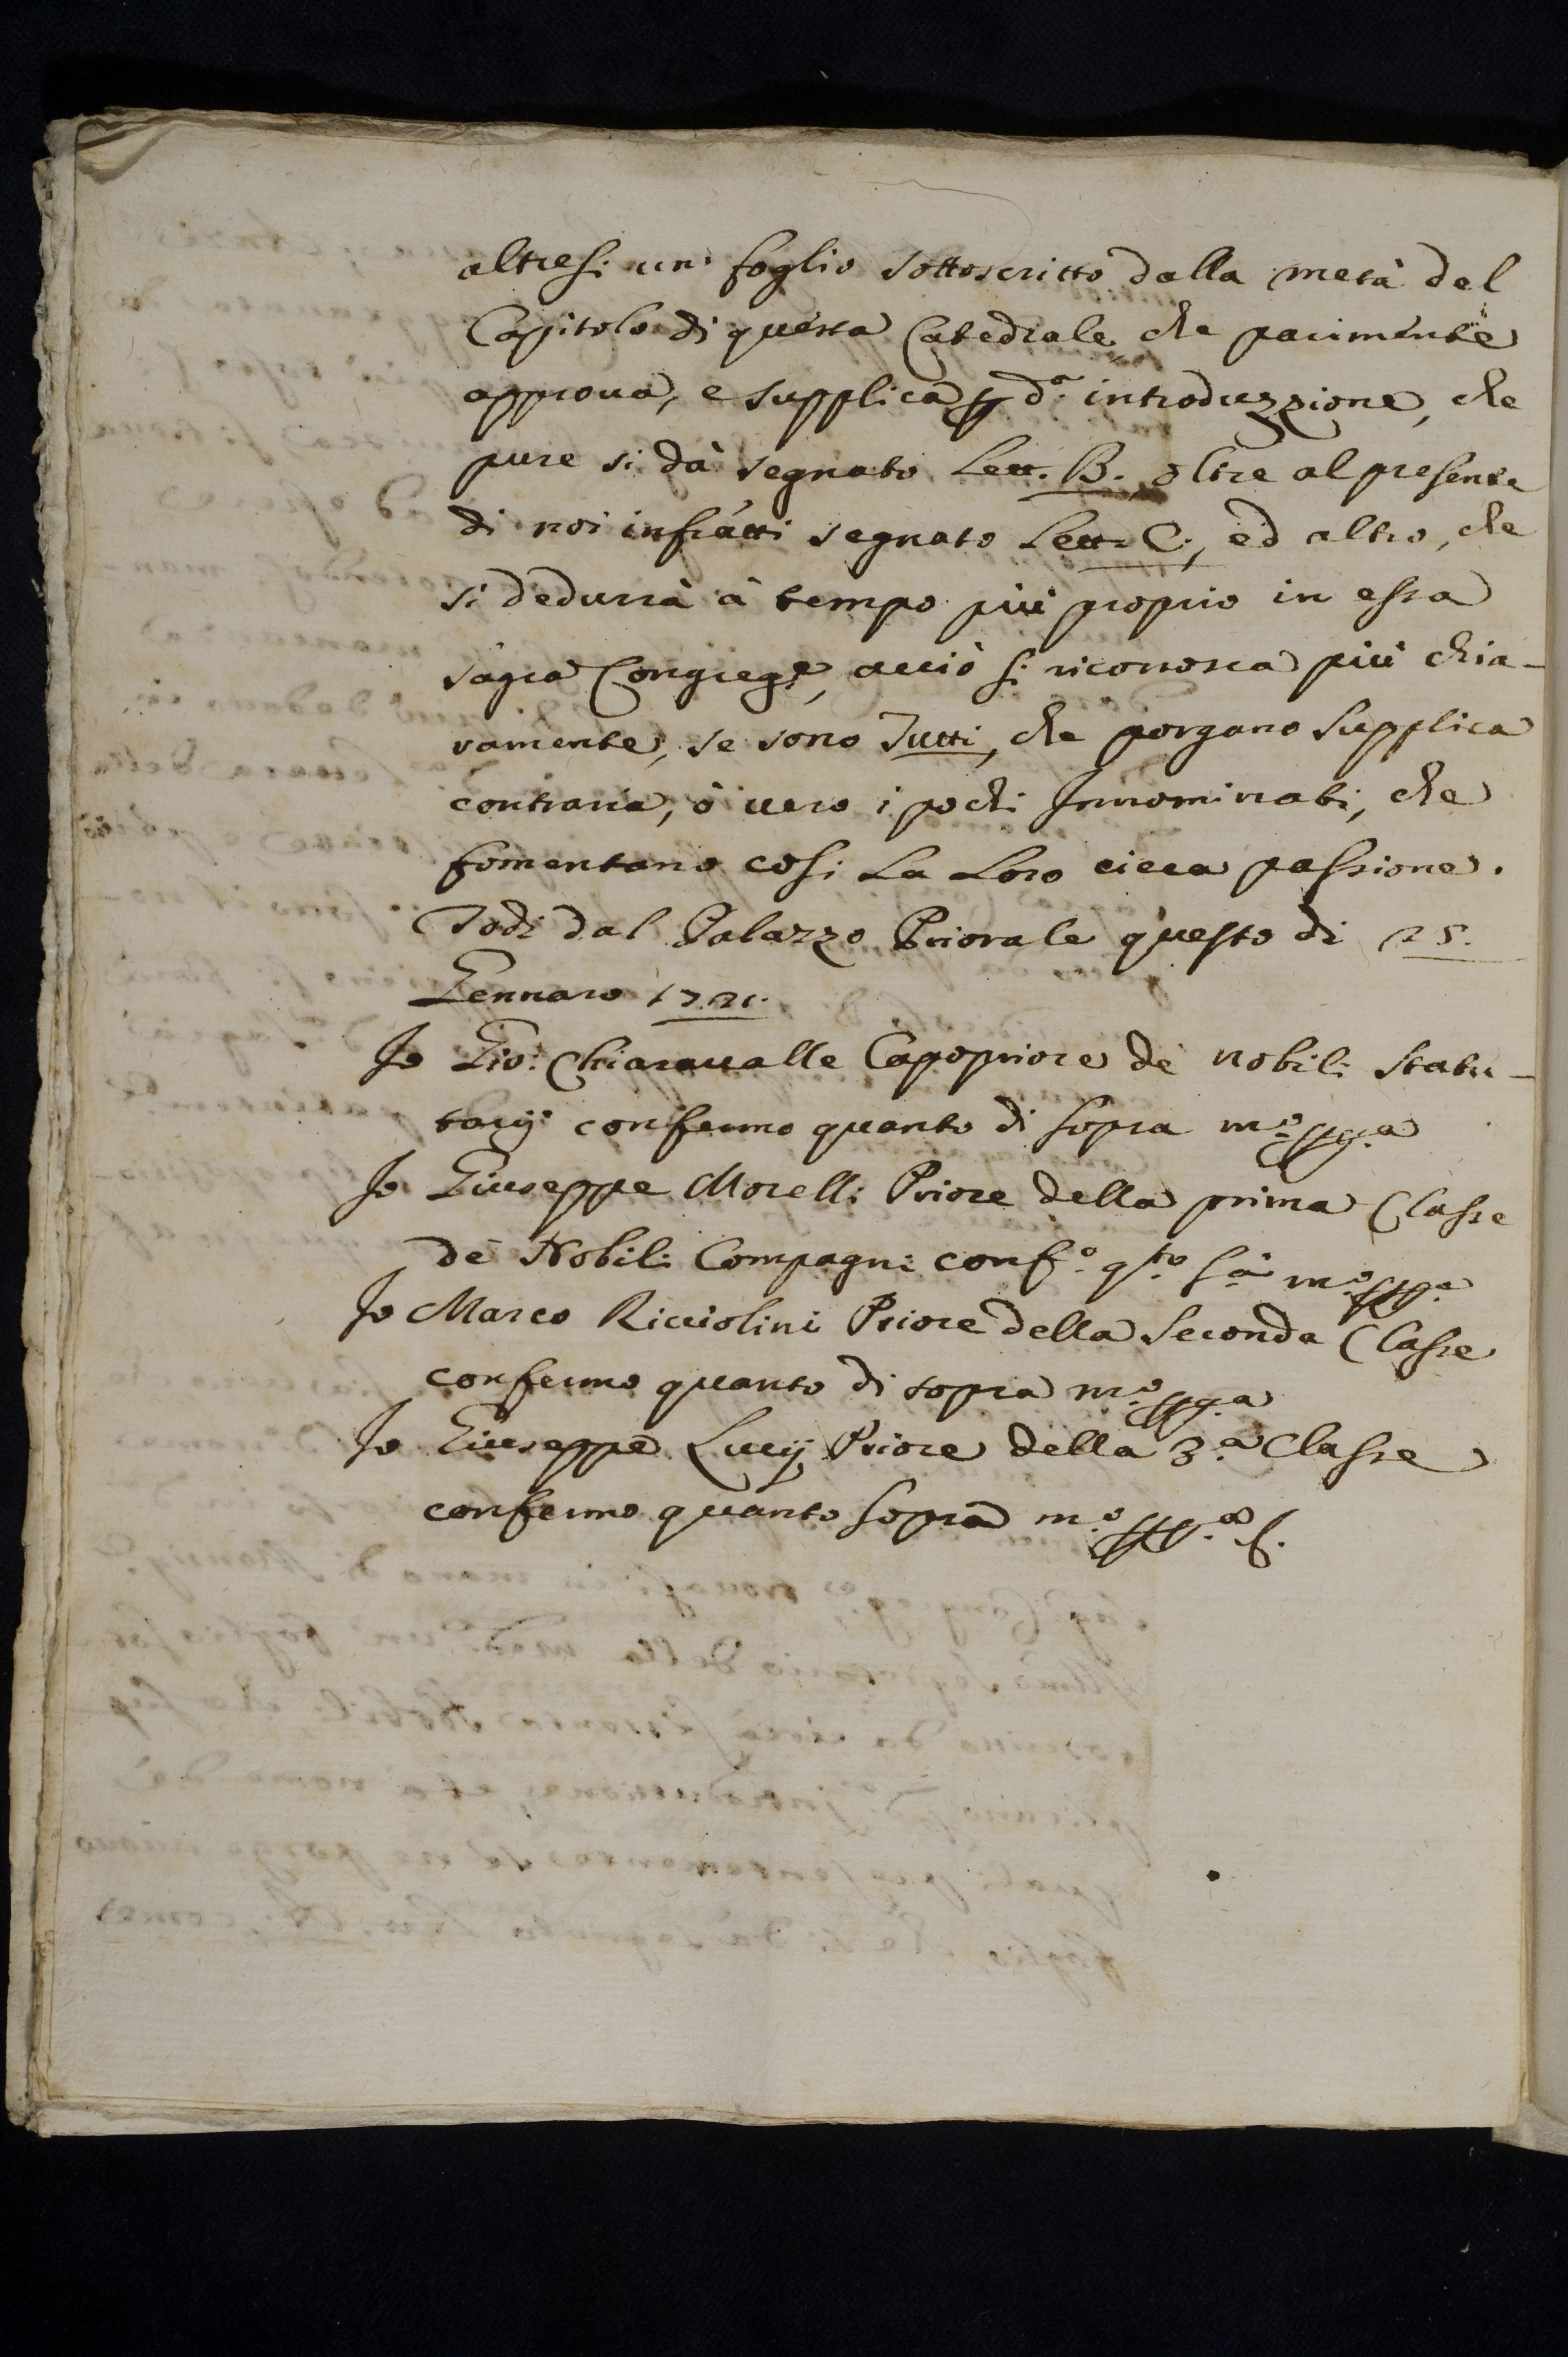 altresi un' foglio sottoscritto dalla metà del
Capitolo di questa Catedrale, che parimente
approua, e supplica p d.ª introduzzione, che
pure si dà segnato Lett. B. oltre al presente
di noi infrátti segnato Lett. C., ed altro, che
si dedurrà à tempo più proprio in essa
sagra Congreg.e, acciò si riconosca più chia-
ramente, se sono Tutti, che porgano supplica
contraria, ò uero i pochi Innominati, che
fomentano cosi La Loro cieca passione.
Todi dal Palazzo Priorale questo di 25.
Gennaro 1721.
Io Gio: Chiaraualle Capopriore de Nobili Statu-
tarij confermo quanto di sopra m.º pp.ª
Io Giuseppe Morelli Priore della prima Classe
de Nobili Compagni conf.º q.to s.ª m.º pp.ª
Io Marco Ricciolini Priore della Seconda Classe
confermo quanto di sopra m.º pp.ª
Io Giuseppe Lucij Priore della 3.ª Classe
confermo quanto sopra m.º pp.ª